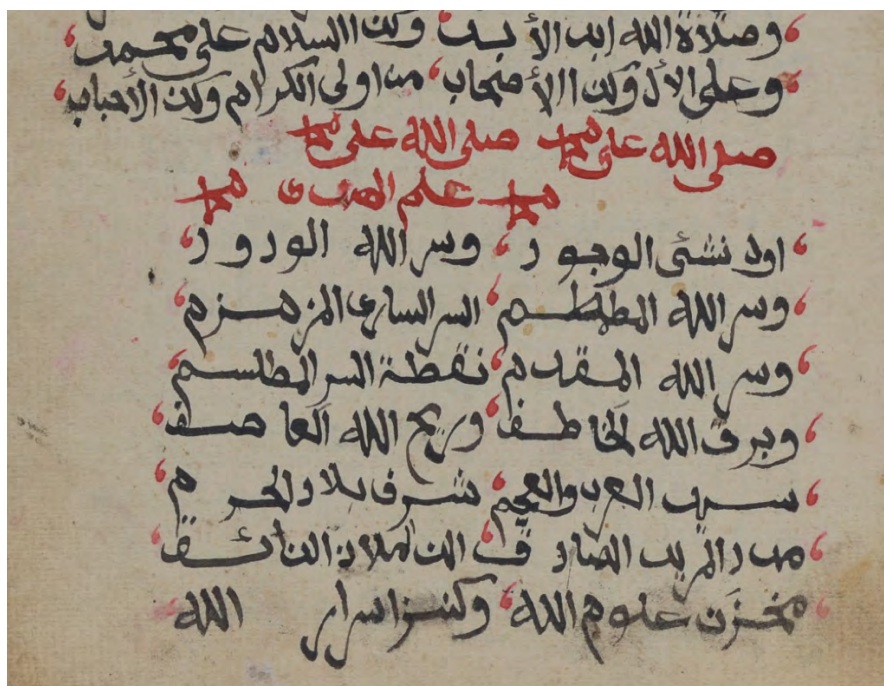 وصلاة الله ابد الأبد وكذا السلام على محمد
وعلى الأل وكذا الأصحاب من اولى الكرام وكذا الأحباب
صلى الله على محمد صلى الله على محمد
محمد علم الهدى محمد
اول نشئ الوجود وسر الله الودود
وسر الله المطمطم السر السارى المزمزم
وسر الله المقدم نقطة السر المطلسم
وبرق الله الخاطف وريح الله العاصف
سيد العرب والعجم شرف بلاد الحرم
مدد المريد الصادق
مخزن علوم الله وكنز اسرار الله